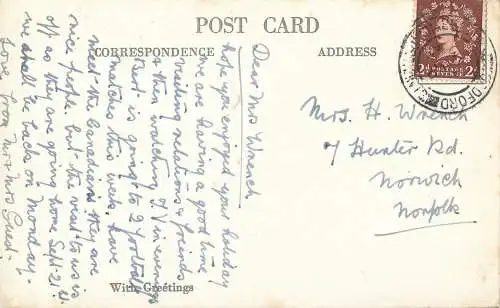 POST CARD
CORRESPONDENCE
ADDRESS
Dear Mrs Wrench
hope you enjoyed your holiday
we are having a good time
visiting relations & friends
& then watching T.V in evenings
Bert is going to 2 football
matches this week. have
meet the Canadians they are
nice people. but the visit to us is
off as they are going home Sept-21st.
we shall be back on Monday.
Love from Mr & Mrs Guest-
With Greetings
Mrs. H. Wrench
7 Hunter Rd.
Norwich
Norfolk
2d POSTAGE REVENUE 2d